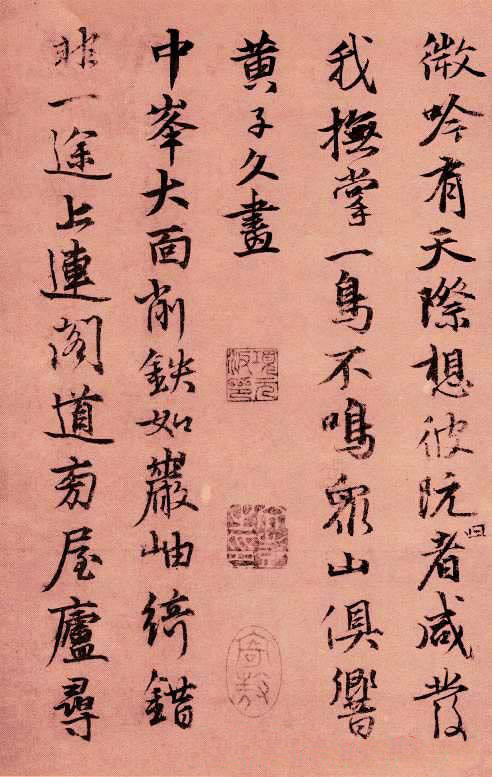 微吟有天際想彼阮者咸發
我撫掌一鳥不鳴眾山俱響
黃子久畫
中峯大面削鉄如巖岫綺錯
非一途上連閣道旁屋廬尋